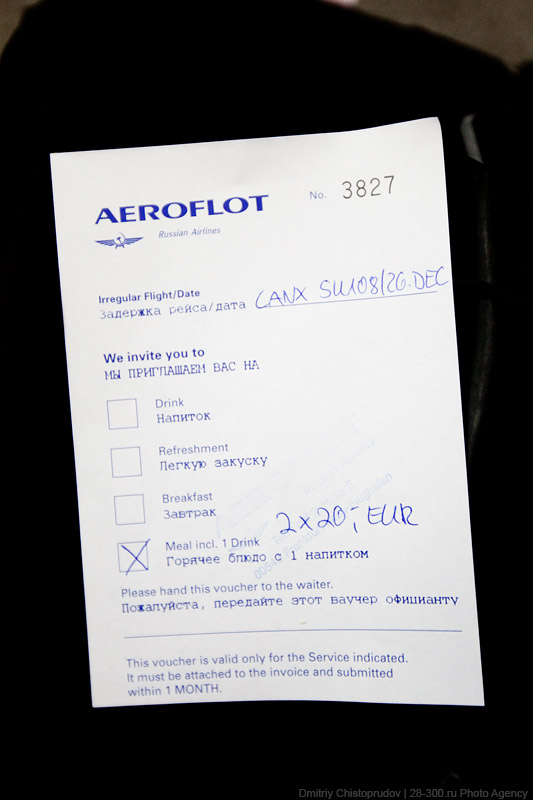 No. 3827
AEROFLOT
Russian Airlines
Irregular Flight/Date
Задержка рейса/дата CANX SU108/26.DEC
We invite you to
МЫ ПРИГЛАШАЕМ ВАС НА
Drink
Напиток
Refreshment
Легкую закуску
Breakfast
Завтрак
2x20,- EUR
Meal incl. 1 Drink
Горячее блюдо с 1 напитком
Please hand this voucher to the waiter.
Пожалуйста, передайте этот ваучер официанту
This voucher is valid only for the Service indicated.
It must be attached to the invoice and submitted
within 1 MONTH.
Dmitriy Chistoprudov | 28-300.ru Photo Agency